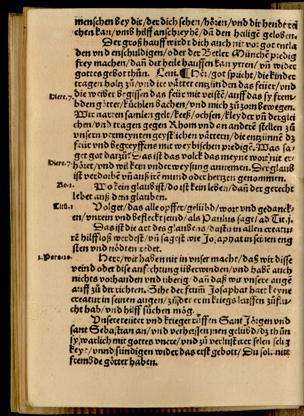 menschen bey dir/ der dich sehen/ hören/ vnd dir
chen kan/ vmb hilff anschiey
Der groß hauff wirdt dich auch nit vor got entla
den vnd enschuldigen/ oder der Betler Münche predig
frey machen/ dan dit heile hauffen kan yrren/ vn wider
gottes gebot thůn. Leui. Hör/ got spricht/ die kinder
tragen holtz zů/ vnd die våtter entzinden das feüer/ vnd
die weiber begissen das feüer mit öle/ auff das sy frem-
Hiere.7.
bden götter/ küchlen bachen/ vnd mich zů zorn bewegen.
Wir narren samlen gelt/ keeß/ ochsen/ kleyder vn der glei
chen/ vnd tragen gegen Rhom vnd an andere stellen zů
vnsern vermeynten geystlichen våttern/ die entzinnē dz
feür vnd begreyffens mit weybischen predigē. Was sa-
get got darzů? Das ist das volck das meyne wort nit er-
Hiere.7.
höret/ vnd wil kein vnderweysung annemen. Der glaub
ist verdorbē vn auß irē mund vnd hertzen genommen.
Ro.1.
Wo kein glaub ist/ do ist kein leben/ dan der gerecht
lebet auß dem glauben.
Titū.1
Volget/ das alle opffer/ gelübd/ wort vnd gedanck-
en/ vnrein vnd befleckt seind/ als Paulus sage/ ad Tit.j.
Das ist die act des glaubens/ das tu in allen creatu
rē hilffloß werdest/ vn sagest wie Josaphat in seinen eng
sten vnd nödten redet.
2.Para.20.
Herr/ wir haben nit in vnser macht/ daß wir disse
veind oder disse anfechtung überwenden/ vnd habē auch
nichts vorhanden vnd überig/ dan daß wir vnsere auge
auff zů dir richten. Sihe der frum Josaphat hatt keyne
creatur in seinen augen/ zů der er in kriegs leuffen zůflu-
cht hab/ vnd hilff sůchen mög.
Vnsere reüter vnd krieger růffen Sant Jörgen vnd
sant Sebastian an/ vnd verheissen jnen gelübd/ dz thůn
sy/ warlich mit gottes vneer/ vnd zů verlust irer selen selig
keyt/ vnnd sündigen wider das erst gebott/ Du solt nitt
frembde götter haben.